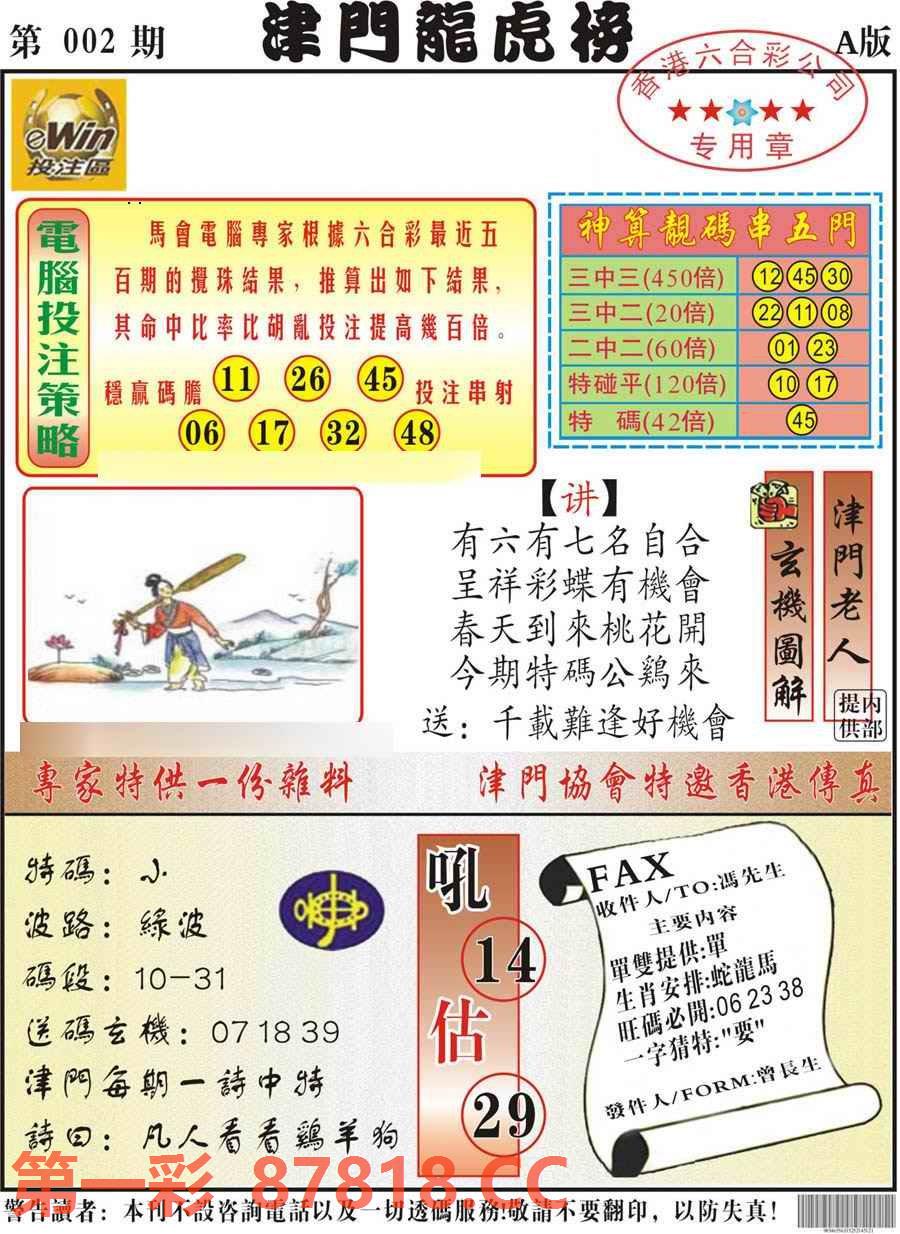 第 002 期
津門龍虎榜
A版
香港六合彩公司
专用章
eWin
投注區
電腦投注策略
馬會電腦專家根據六合彩最近五
百期的攪珠結果，推算出如下結果，
其命中比率比胡亂投注提高幾百倍。
穩贏碼膽 11 26 45 投注串射
06 17 32 48
神算靚碼串五門
三中三(450倍) 12 45 30
三中二(20倍) 22 11 08
二中二(60倍) 01 23
特碰平(120倍) 10 17
特 碼(42倍) 45
【讲】
有六有七名自合
呈祥彩蝶有機會
春天到來桃花開
今期特碼公鷄來
送：千載難逢好機會
玄機圖解
津門老人
内部提供
專家特供一份雜料
津門協會特邀香港傳真
特碼：小
波路：綠波
碼段：10-31
送碼玄機：07 18 39
津門每期一詩中特
詩曰：凡人看看鷄羊狗
吼
14
估
29
FAX
收件人/TO:馮先生
主要内容
單雙提供:單
生肖安排:蛇龍馬
旺碼必開:06 23 38
一字猜特:"要"
發件人/FORM:曾長生
第一彩 87818.CC
警告讀者：本刊不設咨詢電話以及一切透碼服務!敬請不要翻印，以防失真!